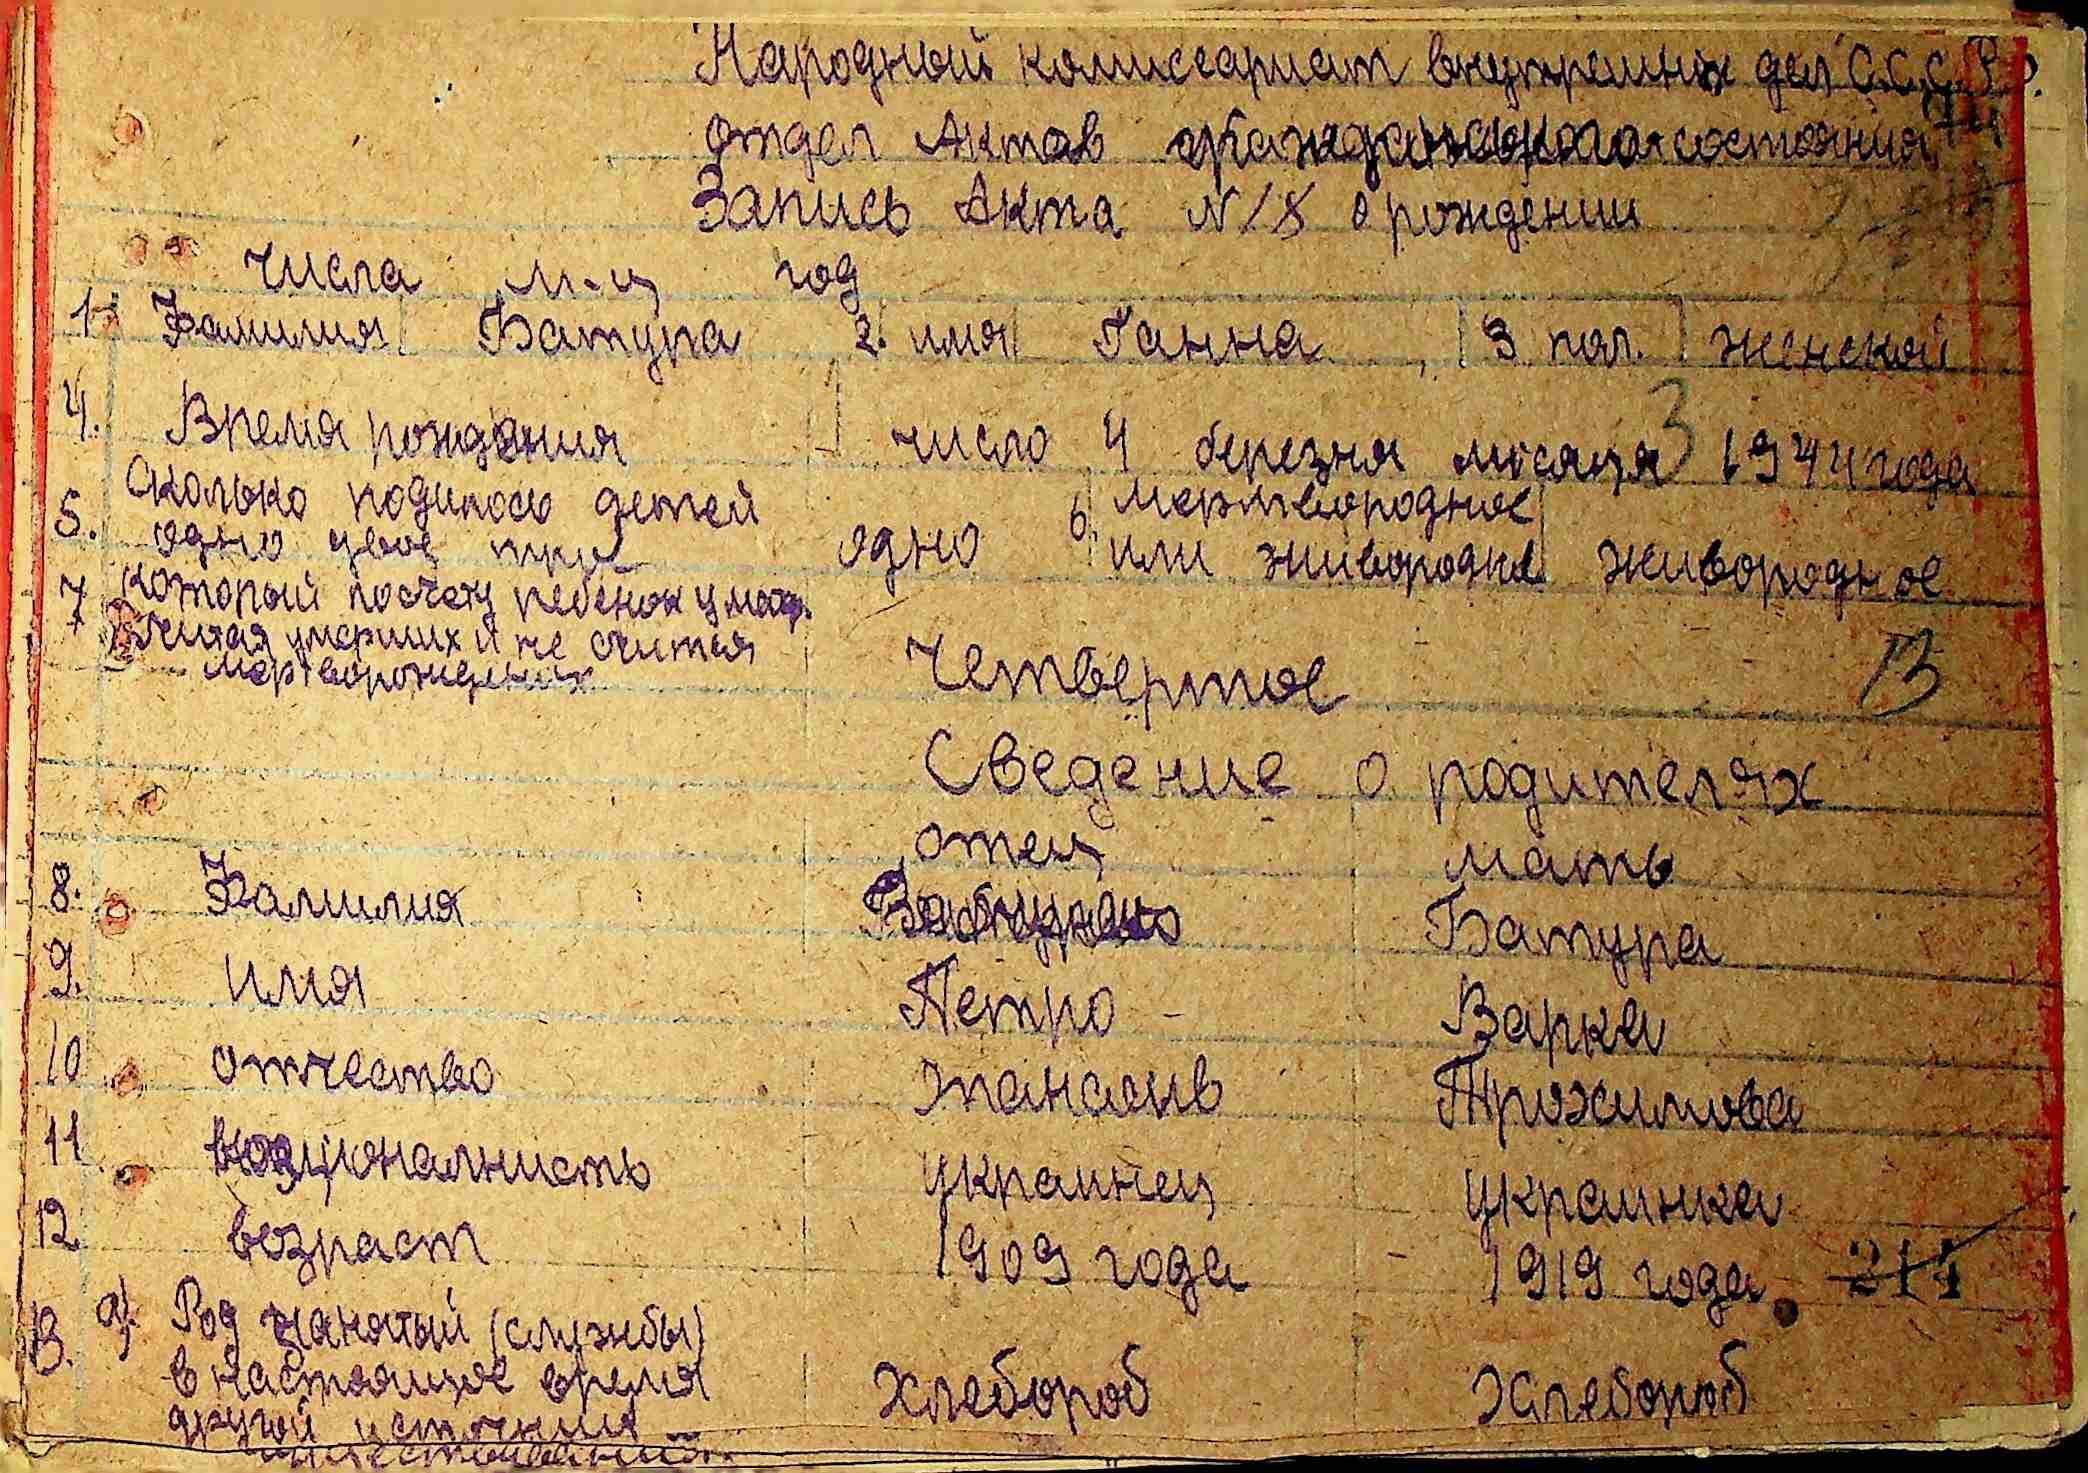 Народный комиссариат внутренных дел С.С.С.Р.
отдел Актов гражданского состояния
Запись Акта N 18 о рождении
числа м-ц год
1. Фамилия Батура 2. имя Ганна 3 пол. женской
4. Время рождения число 4 березня місяця 1944 года
3
5. Сколько родилось детей одно двое три одно 6. мертвородное или живородное живородное
7 который посчету ребенок у матер.
считая умерших и не считая
мертворожденых
Четвертое
13
Сведение о родителях
отец мать
8. Фамилия Батура
9. имя Петро Варка
10 отчество Панасив Трохимова
11 национальнисть украинец украинка
12 возраст 1909 года 1919 года 211
13. а) Род занятий (службы)
в настоящое время хлебороб хлебороб
другой источник